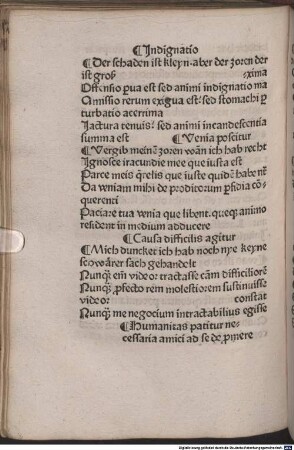 ¶Indignatio
¶Der schaden ist kleyn·aber der zoren der
ist groß ⁌xima
Offensio ꝑua est sed animi indignatio ma
Amissio rerum exigua est: sed stomachi ꝑ
turbatio acerrima
Jactura tenuis: sed animi incandescentia
summa est ¶Venia poscitur
¶Vergib meinē zoren wān ich hab recht
Ignosce iracundie mee que iusta est
Parce meis q̄relis que iuste quidē habent̄
Da veniam mihi de proditorum ꝑfidia cō
querenti
Paciare tua venia que libent. queqꝫ animo
resident in medium adducere
¶Causa difficilis agitur
¶Mich duncket ich hab noch nye keyne
schwārer sach gehandelt
Nunqꝫ em̄ videor tractasse cām difficiliorē
Nunqꝫ ꝓfecto rem molestiorem sustinuisse
videor: constat
Nunqꝫ me negocium intractabilius egisse
¶Humanitas patitur ne⸗
cessaria amici ad se deꝓmere